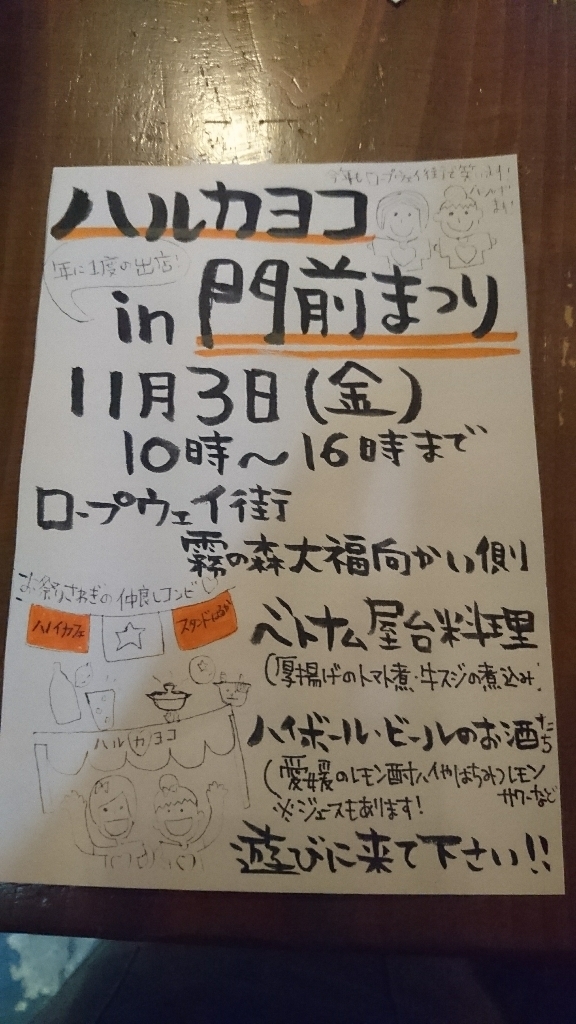 ハルカヨコ
年に1度の出店!
in 門前まつり
11月3日(金)
10時〜16時まで
ロープウェイ街
霧の森大福向かい側
お祭りさわぎの仲良しコンビ
ハノイカフェ
ベトナム屋台料理
(厚揚げのトマト煮・牛スジの煮込み)
ハルカヨコ
ハイボール・ビールのお酒たち
(愛媛のレモン酎ハイやはちみつレモンサワーなど
※ジュースもあります!
遊びに来て下さい!!